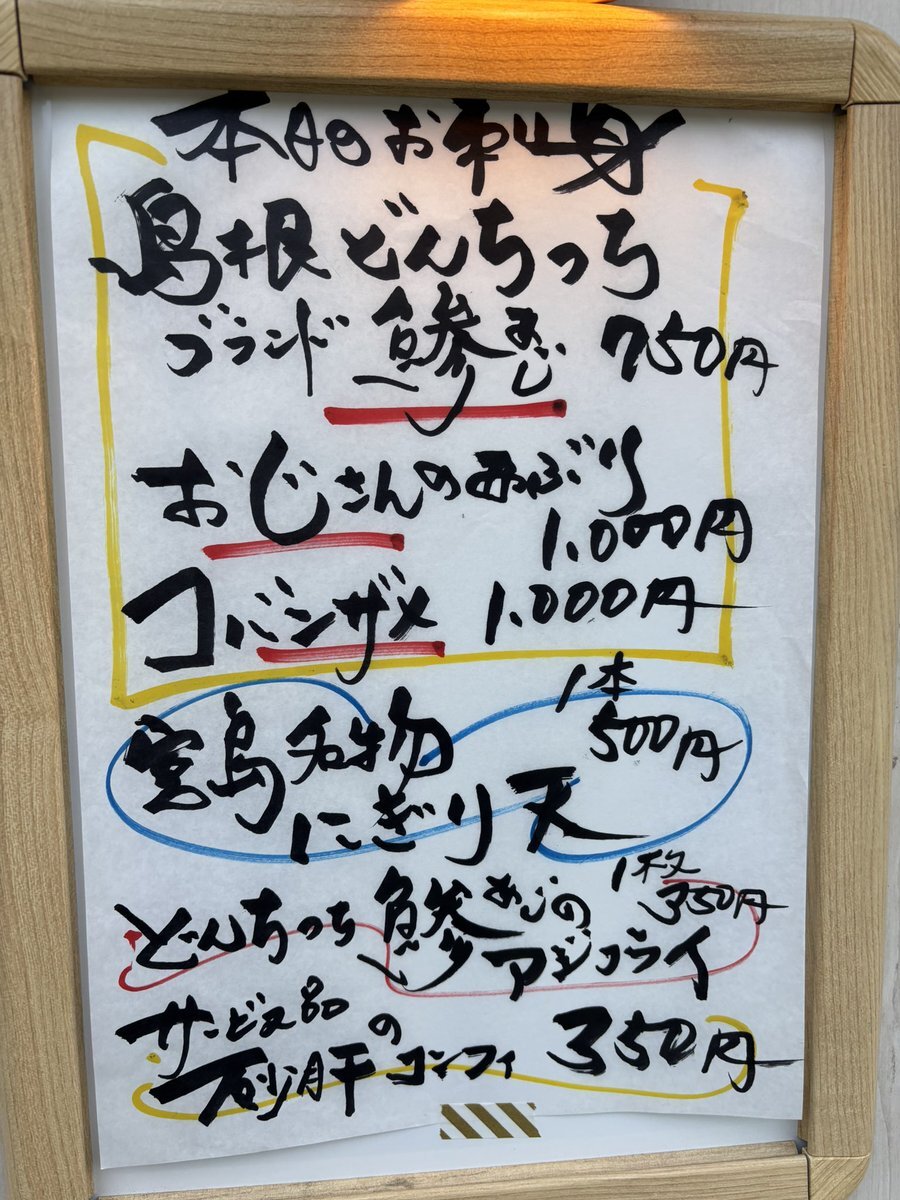 本日のお刺身
島根どんちっち
ブランド 鯵 あじ 750円
おじさんのあぶり
1.000円
コバンザメ 1.000円
宮島名物 1本
500円
にぎり天
どんちっち鯵あじの 1枚
350円
アジフライ
サービス品
砂肝のコンフィ 350円